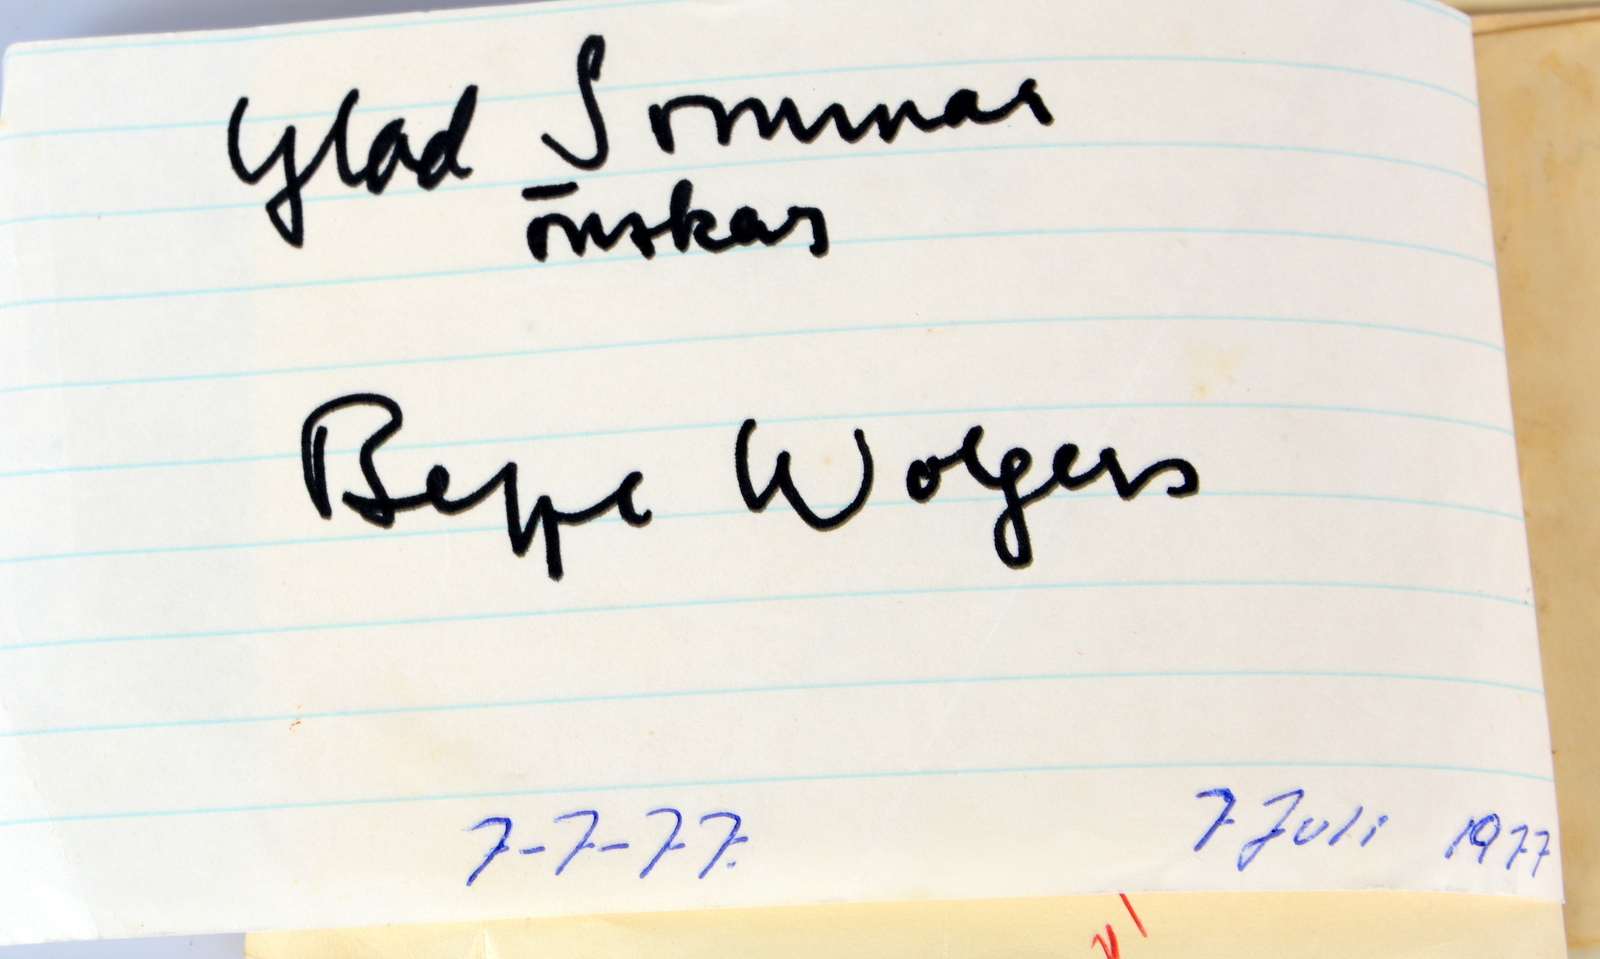 Glad Sommar
önskar
Beppe Wolgers
7-7-77.
7 Juli 1977